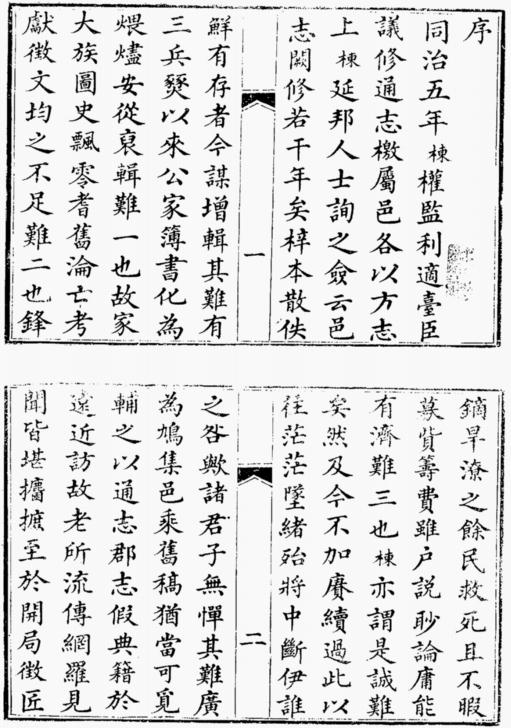 序
同治五年棟權監利適臺臣
議修通志檄屬邑各以方志
上棟延邦人士詢之僉云邑
志闕修若干年矣梓本散佚
一
鮮有存者今謀增輯其難有
三兵燹以來公家簿書化為
煨燼安從裒輯難一也故家
大族圖史飄零耆舊淪亡考
獻徵文均之不足難二也鋒
鏑旱潦之餘民救死且不暇
募貲籌費雖户説眇論庸能
有濟難三也棟亦謂是誠難
矣然及今不加賡續過此以
往茫茫墜緒殆將中斷伊誰
二
之咎歟諸君子無憚其難廣
為鳩集邑乘舊稿猶當可覓
輔之以通志郡志假典籍於
遠近訪故老所流傳網羅見
聞皆堪攟摭至於開局徵匠